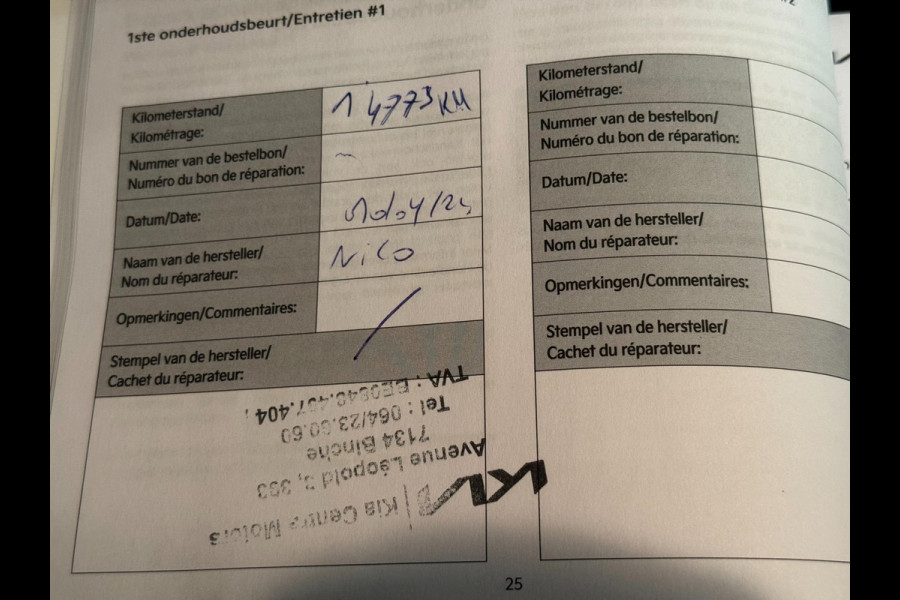 1ste onderhoudsbeurt/Entretien #1
Kilometerstand/
Kilométrage:
1 4773 KM
Nummer van de bestelbon/
Numéro du bon de réparation:
Datum/Date:
Naam van de hersteller/
Nom du réparateur:
Nico
Opmerkingen/Commentaires:
/
Stempel van de hersteller/
Cachet du réparateur:
KIA | Kia Centre Motors
Avenue Léopold 3, 333
7134 Binche
Tel : 064/23.60.60
TVA :
Kilometerstand/
Kilométrage:
Nummer van de bestelbon/
Numéro du bon de réparation:
Datum/Date:
Naam van de hersteller/
Nom du réparateur:
Opmerkingen/Commentaires:
Stempel van de hersteller/
Cachet du réparateur:
25